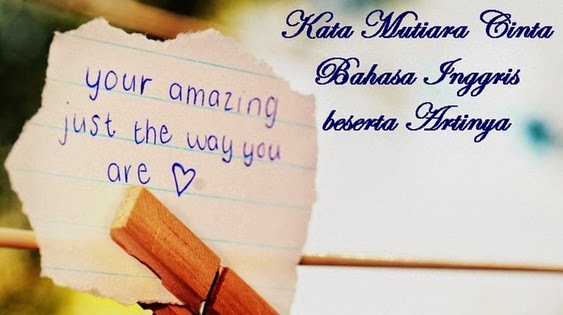 your amazing
just the way you
are ♡
Kata Mutiara Cinta
Bahasa Inggris
beserta Artinya